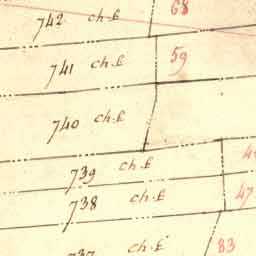 742 ch.L 68
741 ch.L 59
740 ch.L
739 ch.L
738 ch.L 47
737 ch.L 83